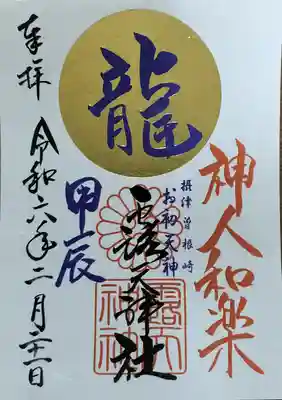 龍
神人和楽
摂津曽根崎
お初天神
露天神社
露天神社
甲辰
奉拝
令和六年二月二十一日